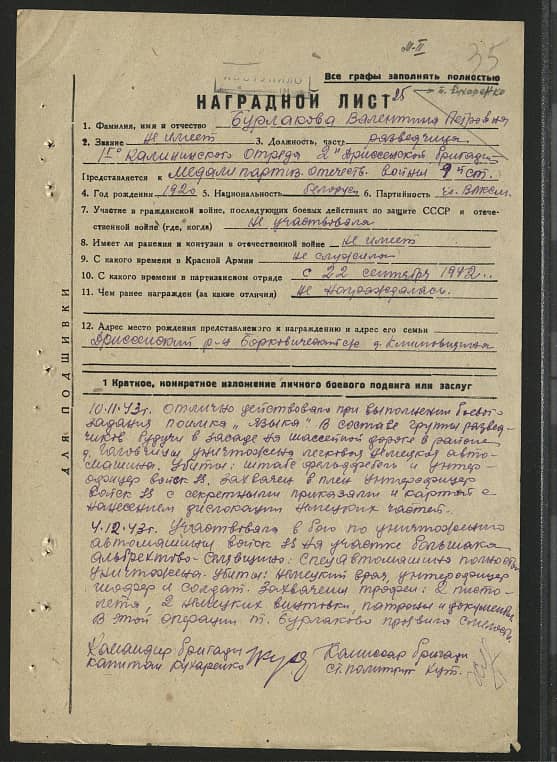 М-II
35
ПОСТУПИЛО
Все графы заполнять полностью
т. Кухаренко
НАГРАДНОЙ ЛИСТ 25
1. Фамилия, имя и отчество Бурлакова Валентина Петровна
2. Звание Не имеет 3. Должность, часть разведчица
1го Калининского Отряда 2й Дриссенской бригады
Представляется к Медали партиз. отечеств. войны 1й ст.
4. Год рождения 1920 5. Национальность белорус 6. Партийность чл. ВЛКСМ.
7. Участие в гражданской войне, последующих боевых действиях по защите СССР и отече-
ственной войне (где, когда) Не участвовала
8. Имеет ли ранения и контузии в отечественной войне Не имеет
9. С какого времени в Красной Армии Не служила
10. С какого времени в партизанском отряде с 22 сентября 1942 г.
11. Чем ранее награжден (за какие отличия) Не награждалась.
12. Адрес место рождения представляемого к награждению и адрес его семьи
Дриссенский р-н Борковический с/с д. Климовщина
ДЛЯ ПОДШИВКИ
1 Краткое, конкретное изложение личного боевого подвига или заслуг
10.11.43г. отлично действовала при выполнении боевого
задания поимка „языка" в составе группы развед-
чиков будучи в засаде на шоссейной дороге в районе
д. уничтожена легковая немецкая авто-
машина. Убиты: штабс фельдфебель и унтер-
офицер войск SS. Захвачен в плен унтерофицер
войск SS с секретными приказами и картой с
нанесением дислокации немецких частей.
4.12.43г. Участвовала в бою по уничтожению
автомашины войск SS на участке большака
Альбрехтово-: Спецавтомашина полностью
уничтожена. Убиты: Немецкий врач, унтерофицер
шофер и солдат. Захвачены трофеи: 2 писто-
лета, 2 немецких винтовки, патроны и документы
В этой операции т. Бурлакова проявила
Командир бригады Комиссар бригады
капитан Кухаренко ст. политрук